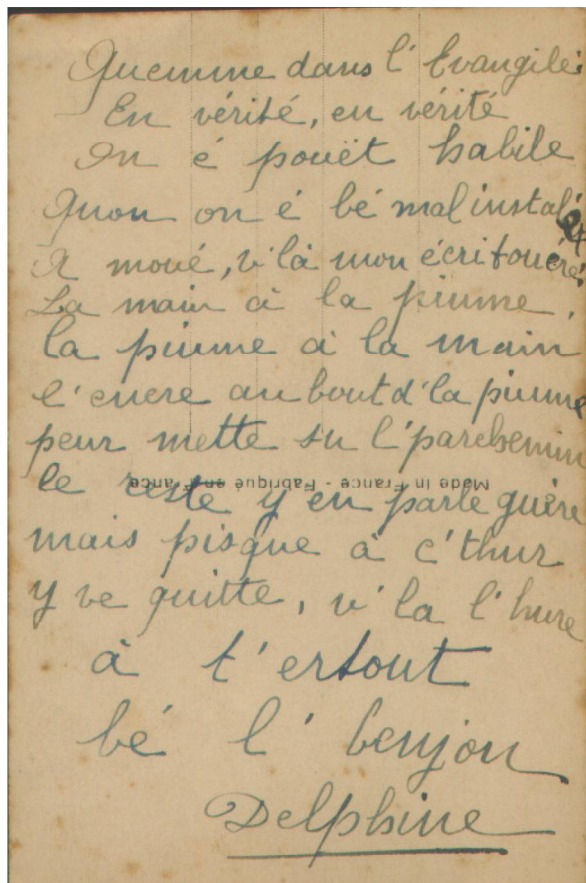 Quemme dans l'Evangile:
En vérité, en vérité
On é pouët habile
Quon on é bé mal instalé
A moué, v'là mon écritouére
La main à la piume,
la piume à la main
l'encre au bout d'la piume
peur mette su l'parchemin
Made in France - Fabriqué en France
le reste y en parle guère
mais pisque à c't'hur
y ve quitte, v'la l'hure
à t'ertout
bé l'benjou
Delphine